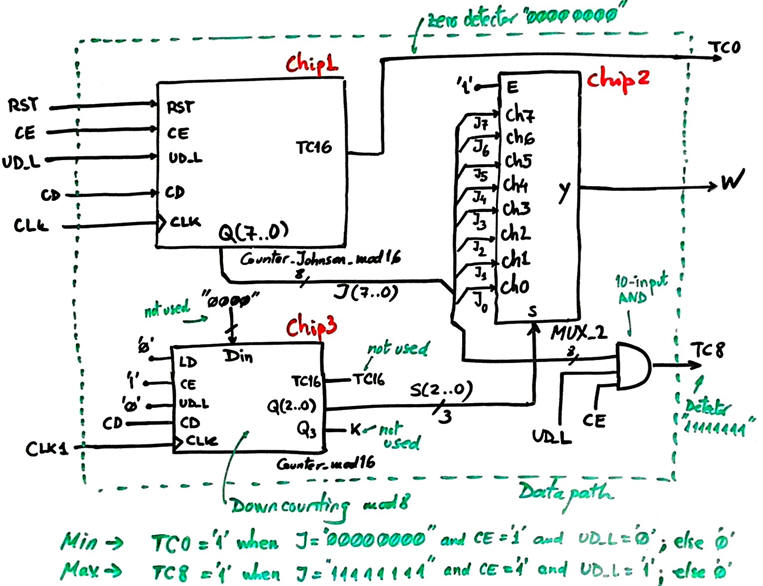 zero detector "00000000"
TC0
Chip1
Chip2
'1'
E
RST
RST
CE
CE
UD_L
UD_L
CD
CD
CLK
CLK
TC16
Q(7..0)
Counter_Johnson_mod16
8
J(7..0)
J7
J6
J5
J4
J3
J2
J1
J0
Ch7
Ch6
Ch5
Ch4
Ch3
Ch2
Ch1
Ch0
Y
W
S
MUX_2
10-input
AND
not used
"0000"
Chip3
Din
'0'
LD
'1'
CE
'0'
UD_L
CD
CD
CLK1
CLK
TC16
TC16
not used
Q(2..0)
S(2..0)
3
Q3
K
not
used
Counter_mod16
8
UD_L
CE
TC8
Detector
"11111111"
Down counting mod8
Datapath
Min → TC0='1' when J="00000000" and CE='1' and UD_L='0'; else '0'
Max → TC8='1' when J="11111111" and CE='1' and UD_L='1'; else '0'